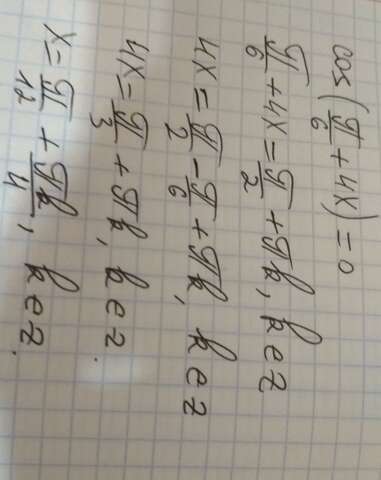 cos(π/6 + 4x) = 0
π/6 + 4x = π/2 + πk, k ∈ z
4x = π/2 - π/6 + πk, k ∈ z
4x = π/3 + πk, k ∈ z.
x = π/12 + πk/4, k ∈ z.